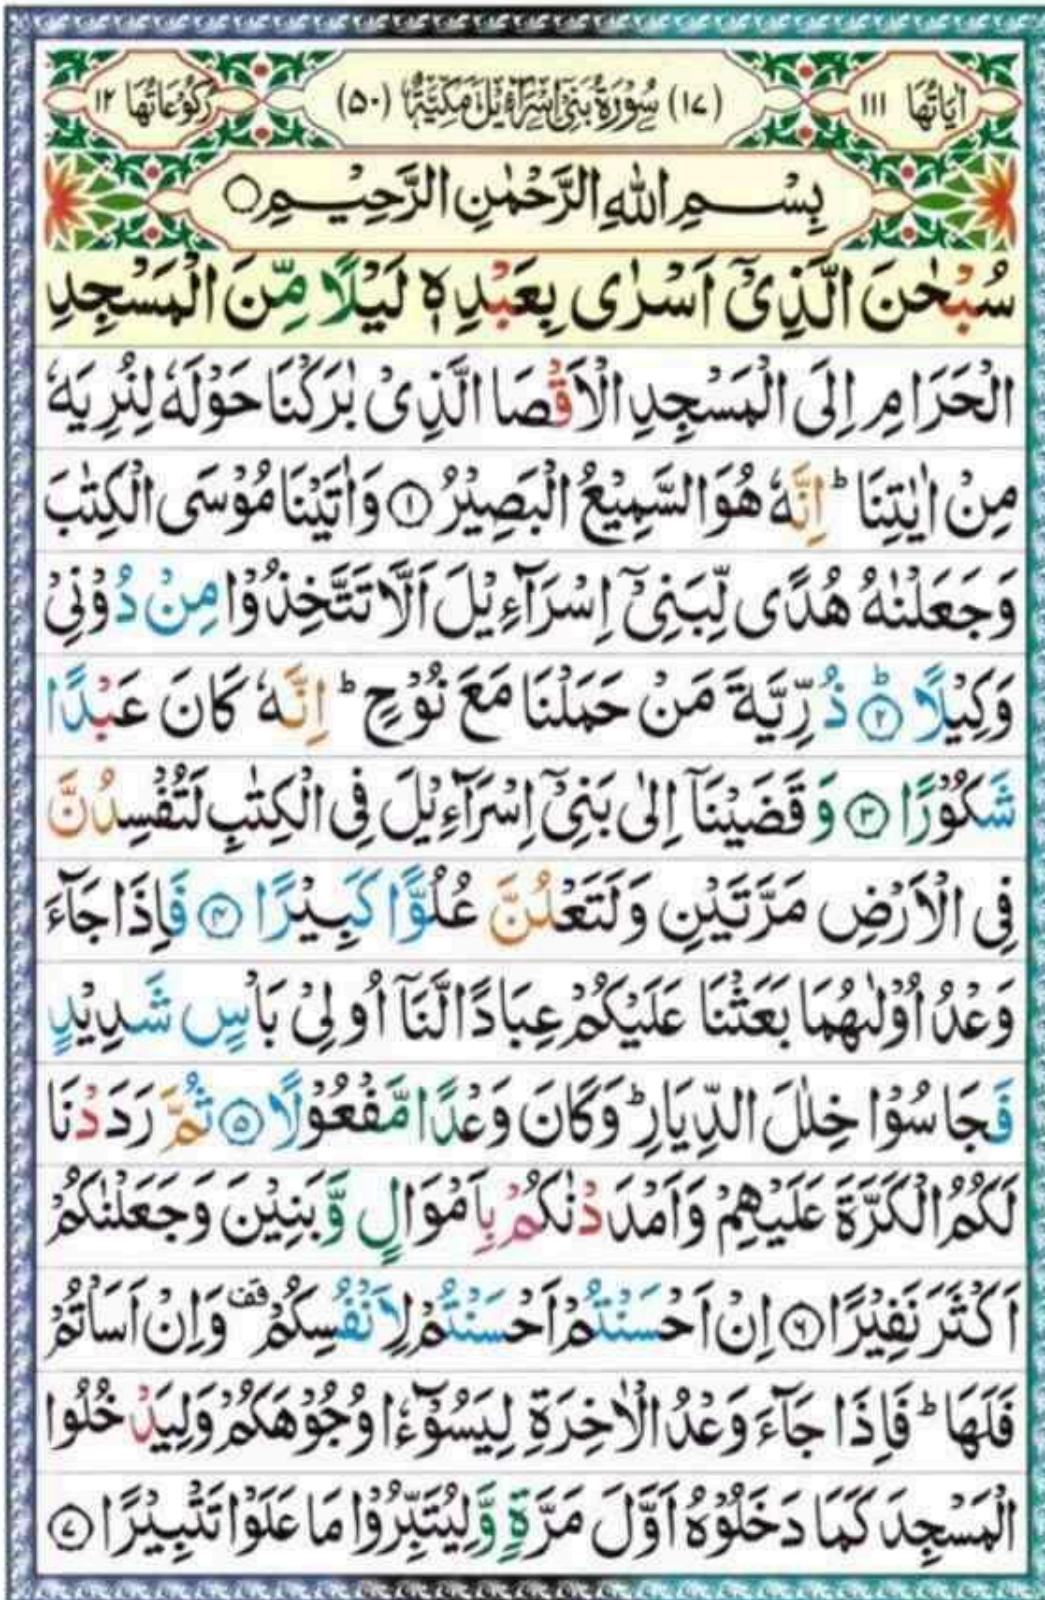 اٰيَاتُهَا ١١١
(١٧) سُوْرَةُ بَنِىْٓ اِسْرَآءِيْلَ مَكِّيَّةٌ (٥٠)
رُكُوْعَاتُهَا ١٢
بِسْمِ اللهِ الرَّحْمٰنِ الرَّحِيْمِ۝
سُبْحٰنَ الَّذِىْٓ اَسْرٰى بِعَبْدِهٖ لَيْلًا مِّنَ الْمَسْجِدِ
الْحَرَامِ اِلَى الْمَسْجِدِ الْاَقْصَا الَّذِىْ بٰرَكْنَا حَوْلَهٗ لِنُرِيَهٗ
مِنْ اٰيٰتِنَا ؕ اِنَّهٗ هُوَ السَّمِيْعُ الْبَصِيْرُ ۝١ وَاٰتَيْنَا مُوْسَى الْكِتٰبَ
وَجَعَلْنٰهُ هُدًى لِّبَنِىْٓ اِسْرَآءِيْلَ اَلَّا تَتَّخِذُوْا مِنْ دُوْنِىْ
وَكِيْلًا ۝٢ؕ ذُرِّيَّةَ مَنْ حَمَلْنَا مَعَ نُوْحٍ ؕ اِنَّهٗ كَانَ عَبْدًا
شَكُوْرًا ۝٣ وَقَضَيْنَآ اِلٰى بَنِىْٓ اِسْرَآءِيْلَ فِى الْكِتٰبِ لَتُفْسِدُنَّ
فِى الْاَرْضِ مَرَّتَيْنِ وَلَتَعْلُنَّ عُلُوًّا كَبِيْرًا ۝٤ فَاِذَا جَآءَ
وَعْدُ اُوْلٰىهُمَا بَعَثْنَا عَلَيْكُمْ عِبَادًا لَّنَآ اُولِىْ بَاْسٍ شَدِيْدٍ
فَجَاسُوْا خِلٰلَ الدِّيَارِ ؕ وَكَانَ وَعْدًا مَّفْعُوْلًا ۝٥ ثُمَّ رَدَدْنَا
لَكُمُ الْكَرَّةَ عَلَيْهِمْ وَاَمْدَدْنٰكُمْ بِاَمْوَالٍ وَّبَنِيْنَ وَجَعَلْنٰكُمْ
اَكْثَرَ نَفِيْرًا ۝٦ اِنْ اَحْسَنْتُمْ اَحْسَنْتُمْ لِاَنْفُسِكُمْ قف وَاِنْ اَسَاْتُمْ
فَلَهَا ؕ فَاِذَا جَآءَ وَعْدُ الْاٰخِرَةِ لِيَسُوْٓءٗا وُجُوْهَكُمْ وَلِيَدْخُلُوا
الْمَسْجِدَ كَمَا دَخَلُوْهُ اَوَّلَ مَرَّةٍ وَّلِيُتَبِّرُوْا مَا عَلَوْا تَتْبِيْرًا ۝٧